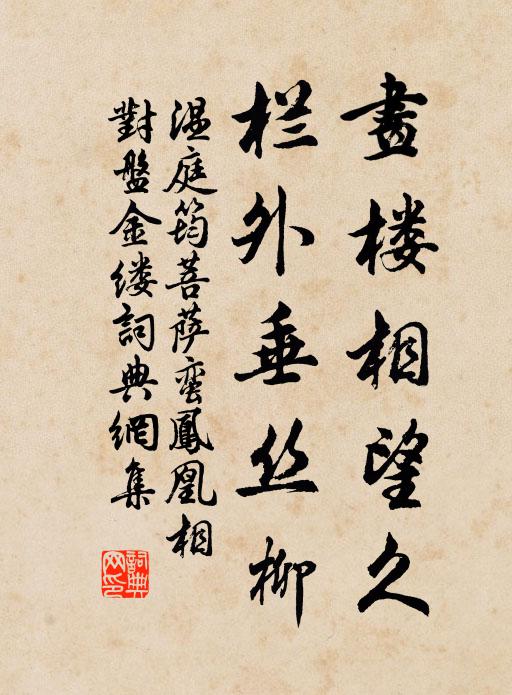 畫楼相望久
栏外垂丝柳
温庭筠菩萨蛮鳳凰相
對盤金缕詞典網集
詞典网印